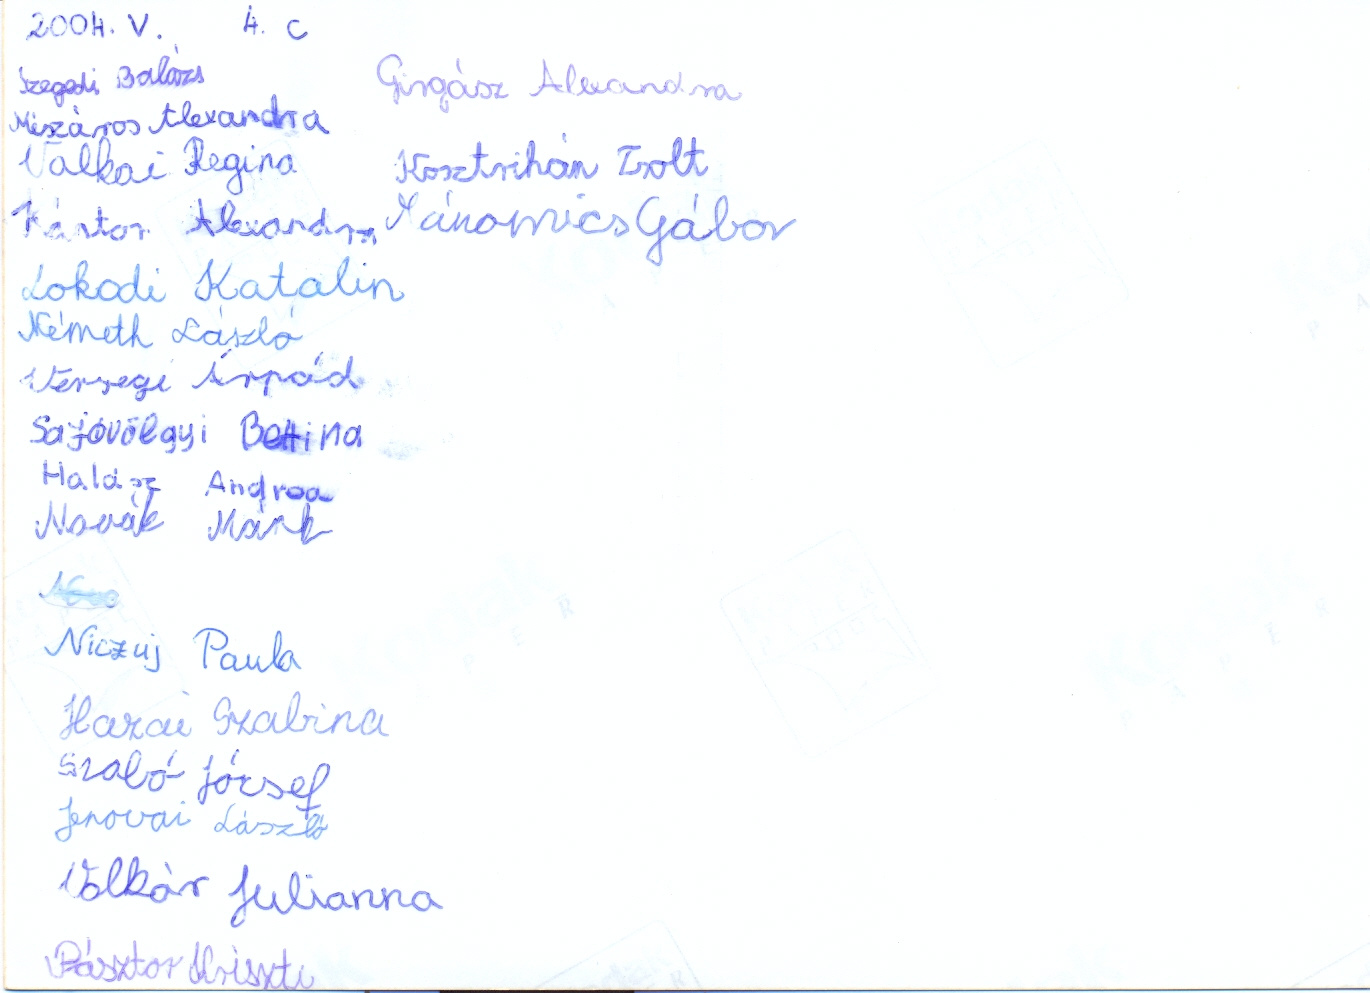 2004. V. 4. c
Szegedi Balázs
Mészáros Alexandra
Valkai Regina
Kántor Alexandra
Lokodi Katalin
Németh László
Versegi Árpád
Sajóvölgyi Bettina
Halász Andrea
Novák Márk
Niczuj Paula
Hazai Szabina
Szabó József
Jenovai László
Volkár Julianna
Pásztor Kriszti
Girgász Alexandra
Kosztrihán Zsolt
Gábor